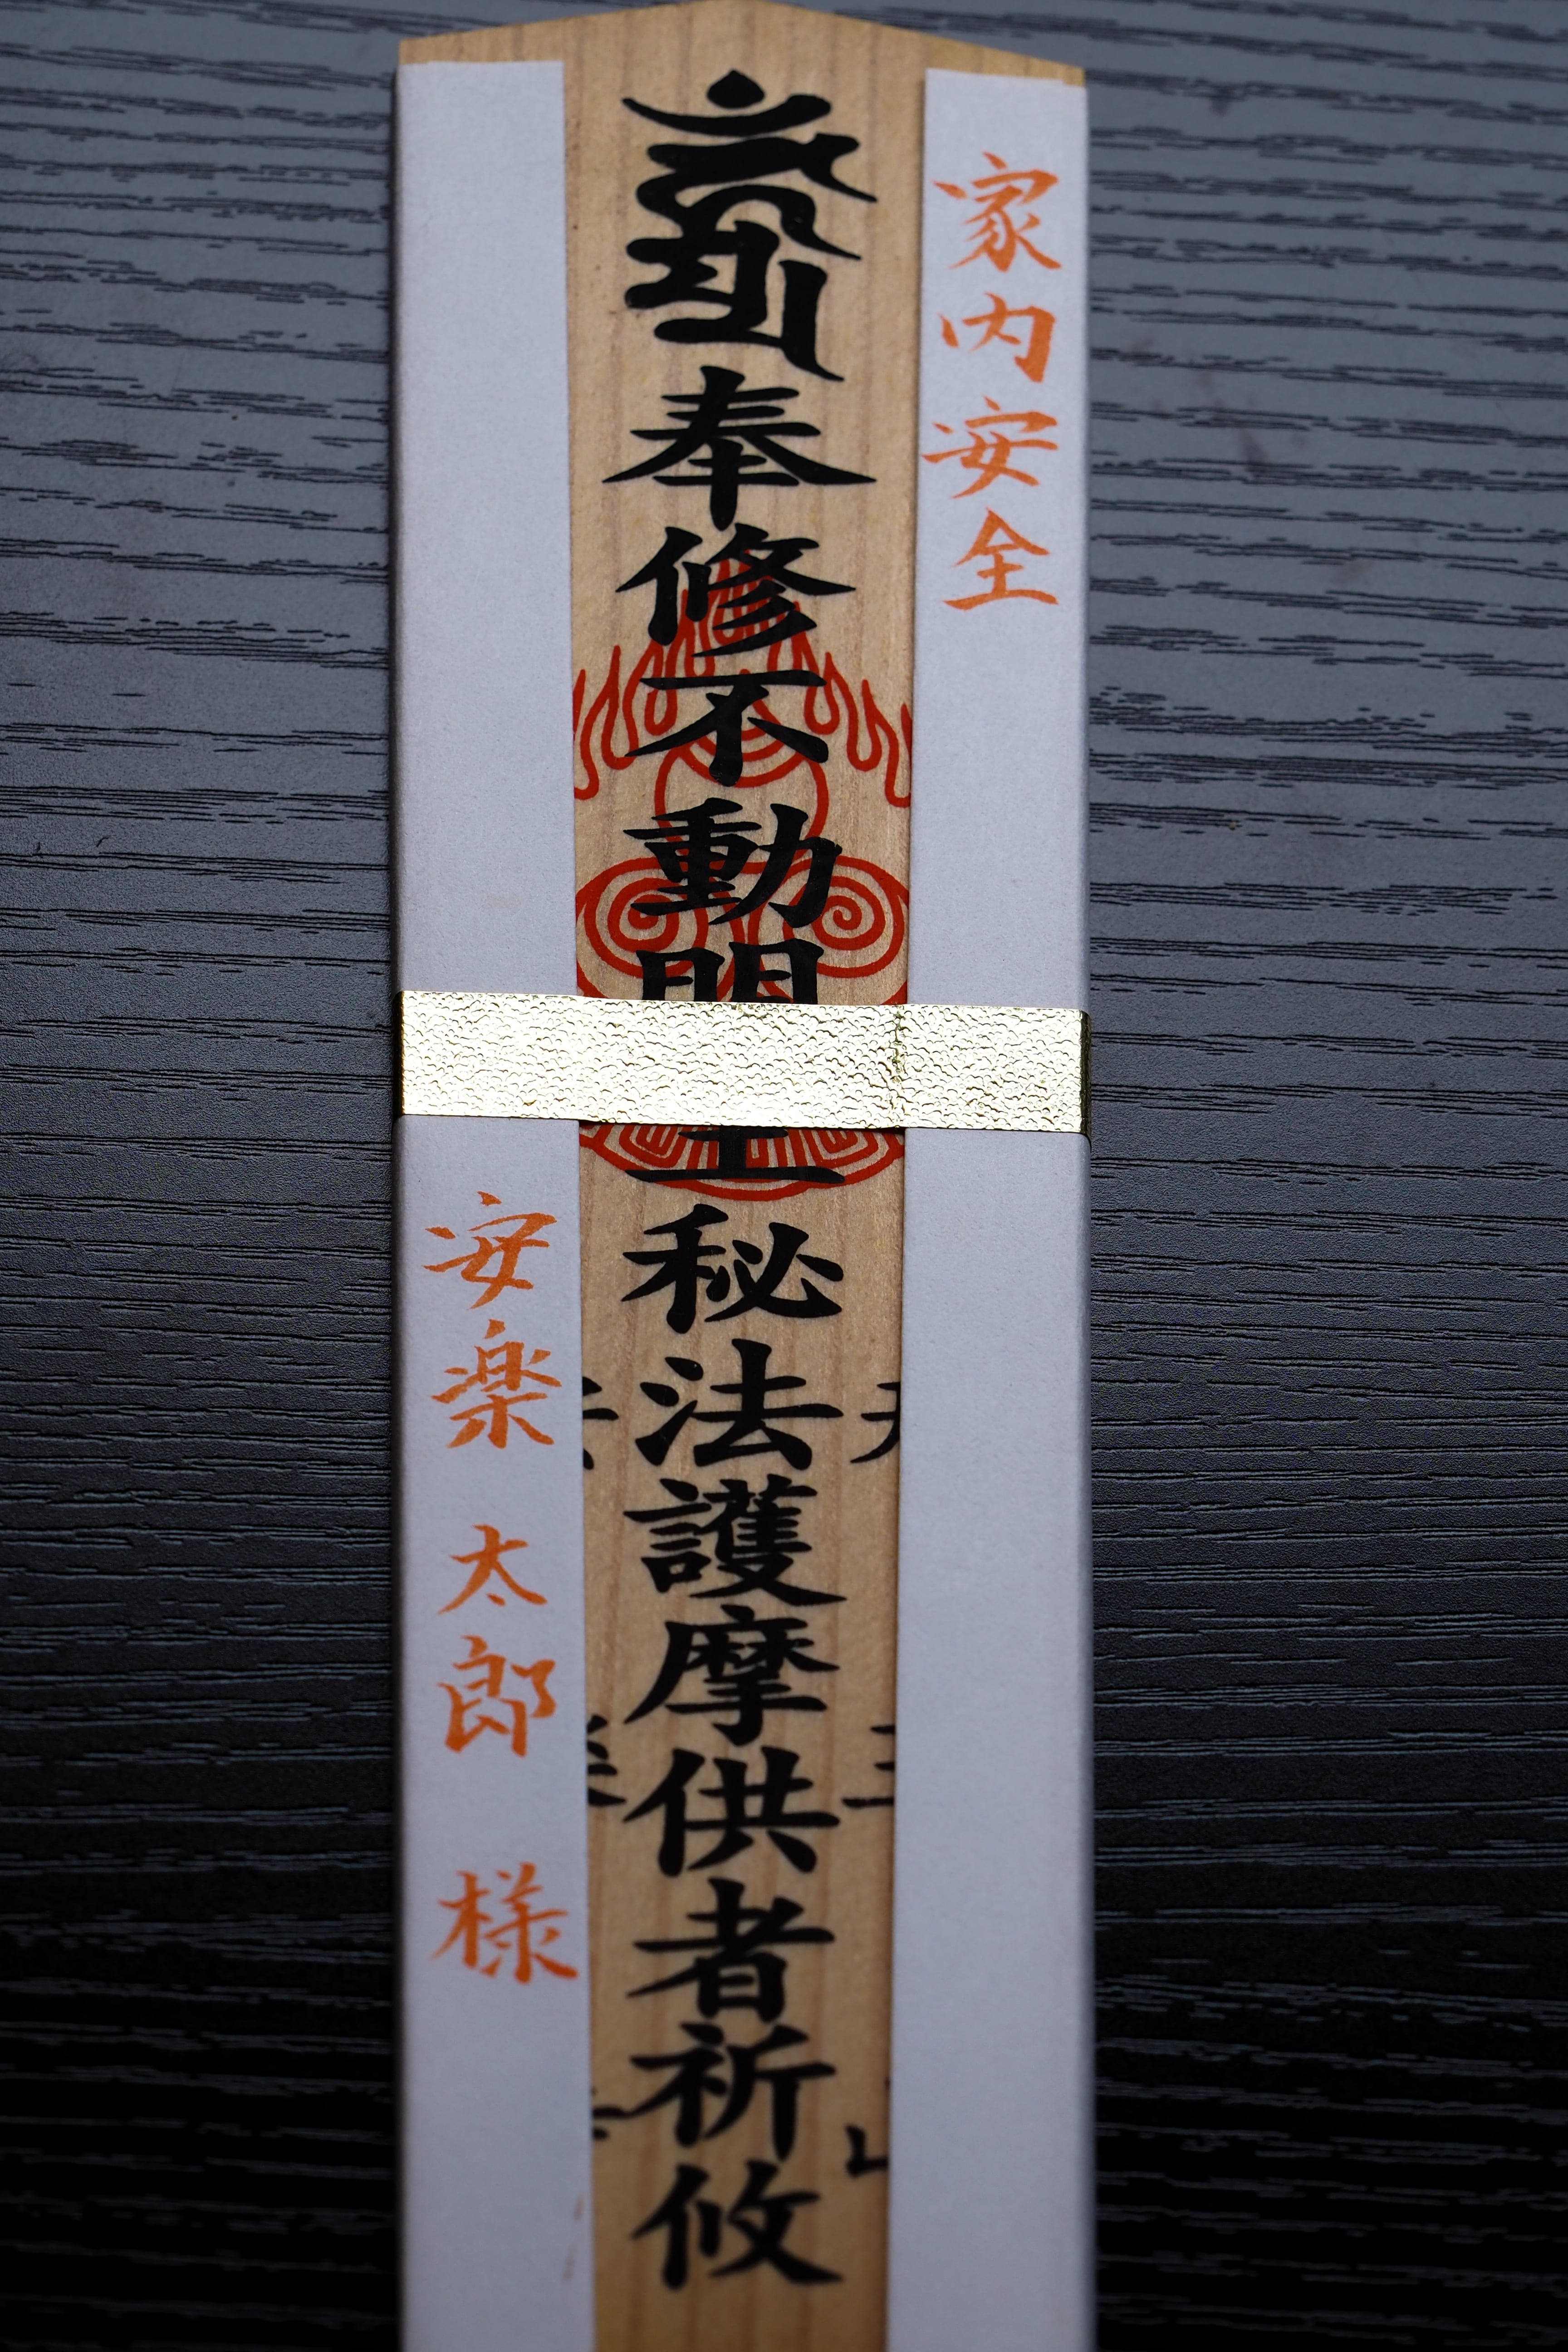 家内安全
奉修不動明王秘法護摩供者祈攸
安楽 太郎 様